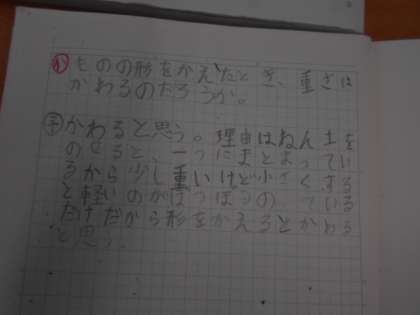 か ものの形をかえたとき、重さは
かわるのだろうか。
予 かわると思う。理由はねん土を
のせると、一つにまとまってい
るから少し重いけど小さくする
と軽いのがばらばらの っている
だけだから形をかえるとかわる
と思う。